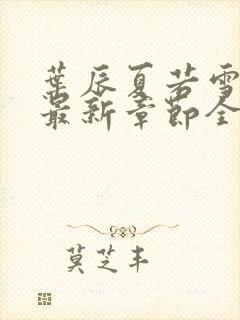 葉辰夏若雪
最新章節全
莫芝丰